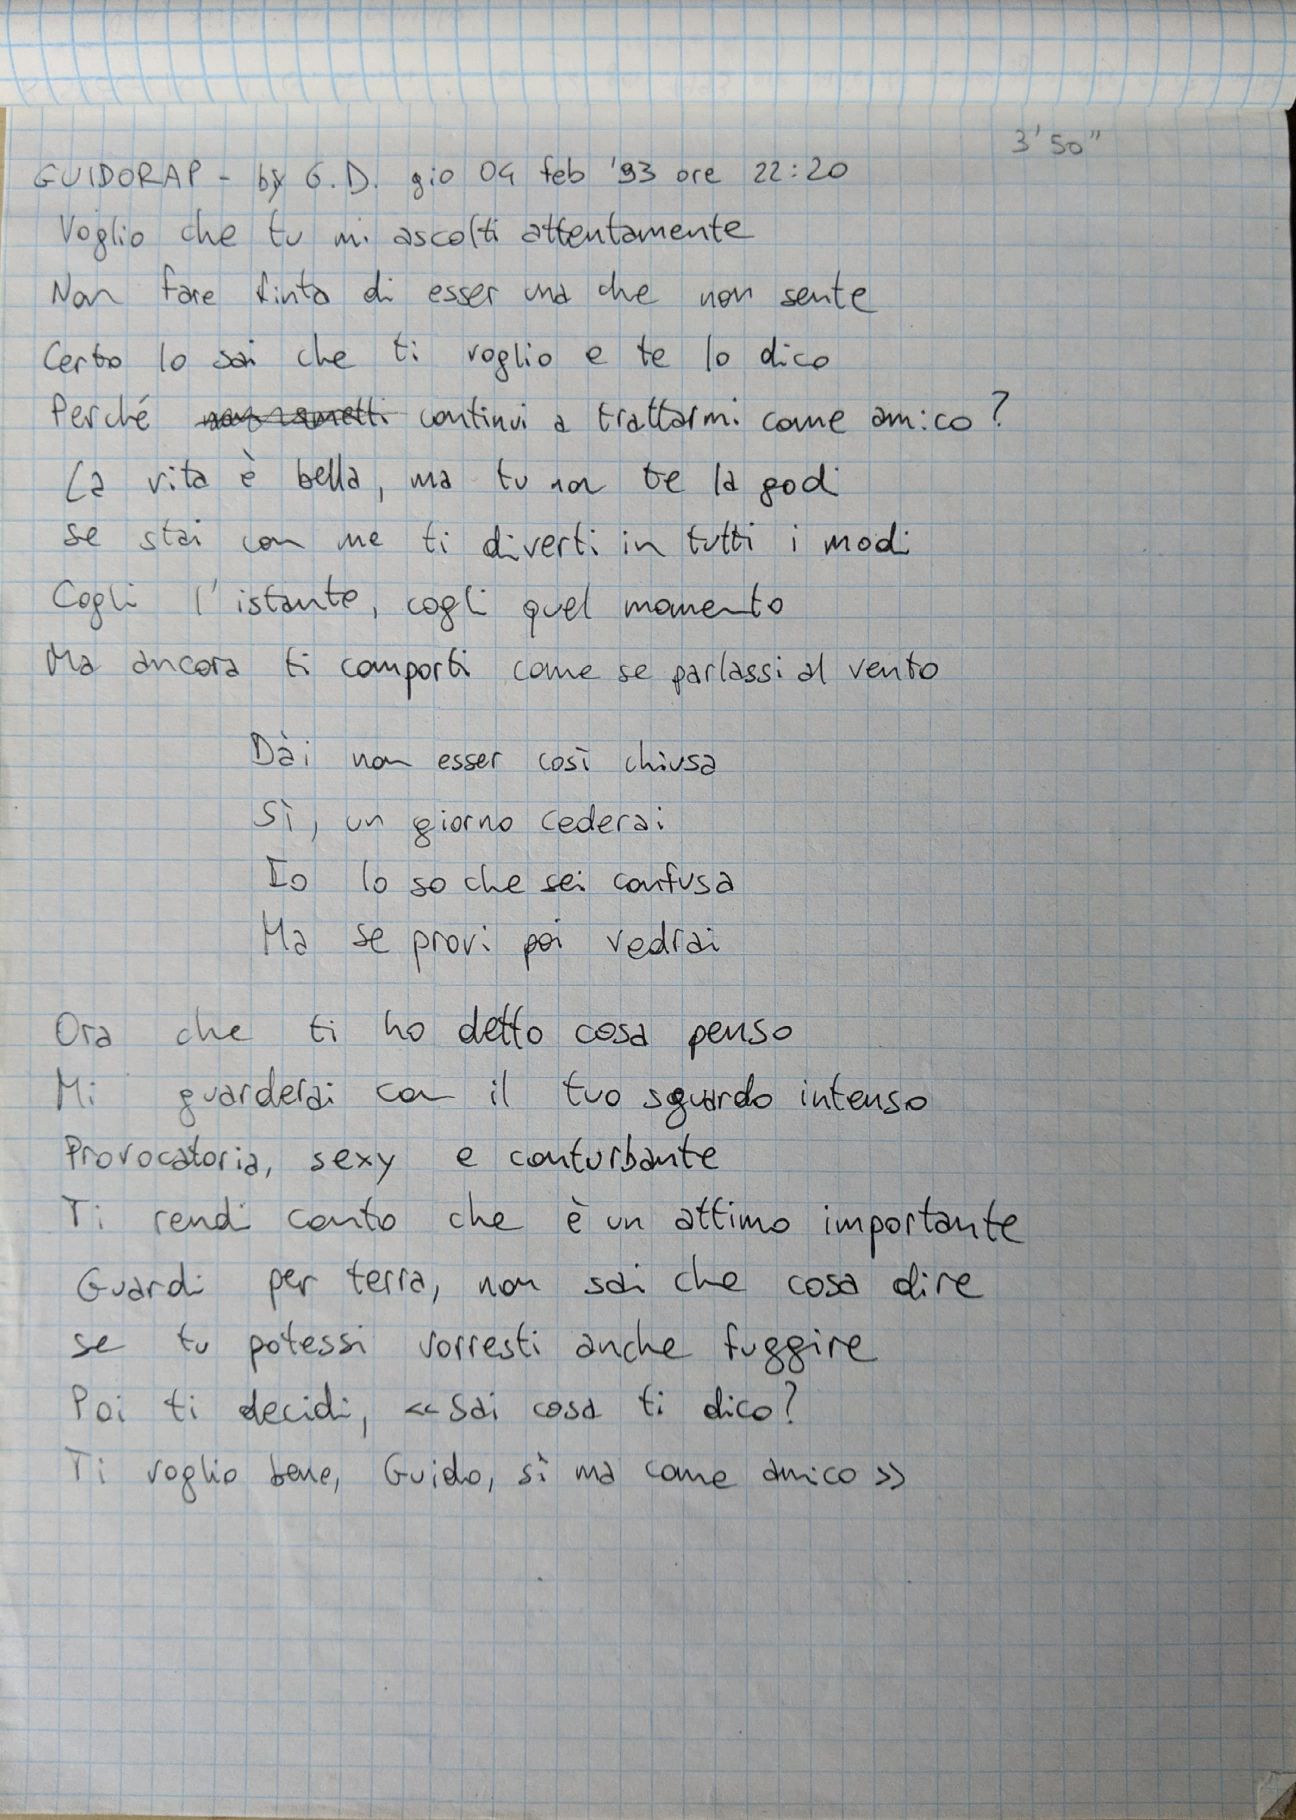 3' 50"
GUIDORAP - by G.D. gio 04 feb '93 ore 22:20
Voglio che tu mi ascolti attentamente
Non fare finta di esser una che non sente
Certo lo sai che ti voglio e te lo dico
Perché continui a trattarmi come amico?
La vita è bella, ma tu non te la godi
se stai con me ti diverti in tutti i modi
Cogli l'istante, cogli quel momento
Ma ancora ti comporti come se parlassi al vento
Dài non esser così chiusa
Sì, un giorno cederai
Io lo so che sei confusa
Ma se provi poi vedrai
Ora che ti ho detto cosa penso
Mi guarderai con il tuo sguardo intenso
Provocatoria, sexy e conturbante
Ti rendi conto che è un attimo importante
Guardi per terra, non sai che cosa dire
se tu potessi vorresti anche fuggire
Poi ti decidi, «Sai cosa ti dico?
Ti voglio bene, Guido, sì ma come amico»